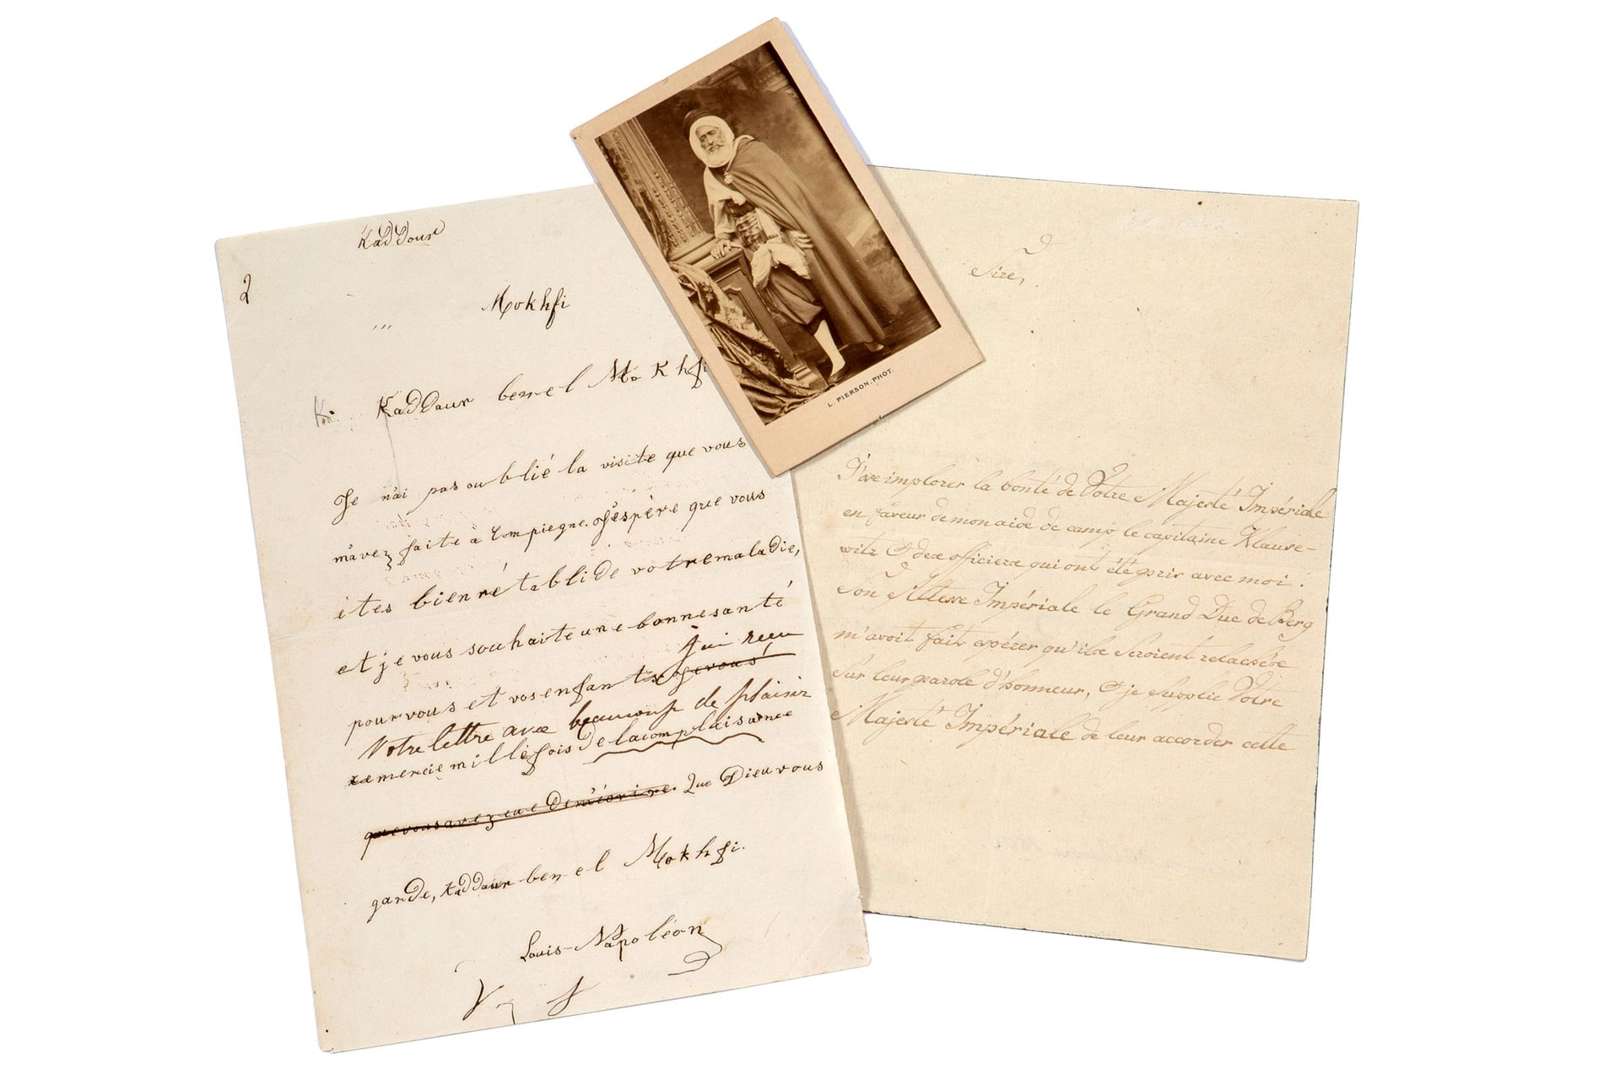 Kaddour
2
Mokhfi
Kaddour ben el Mokhfi
Je n'ai pas oublié la visite que vous
m'avez faite à Compiegne. J'espère que vous
ètes bien rétabli de votre maladie,
et je vous souhaite une bonne santé
j'ai reçu
pour vous et vos enfants je vous
Votre lettre avec beaucoup de plaisir
remercie mille fois de la complaisance
que vous avez eue de m'écrire. Que Dieu vous
garde, Kaddour ben el Mokhfi.
Louis-Napoléon
L. PIERSON. PHOT.
Sire,
J'ose implorer la bonté de Votre Majesté Impériale
en faveur de mon aide de camp le capitaine Klause-
witz & des officiers qui ont été pris avec moi.
Son Altesse Impériale le Grand Duc de Berg
m'avoit fait espérer qu'ils seroient relachés
sur leur parole d'honneur, & je supplie Votre
Majesté Impériale de leur accorder cette